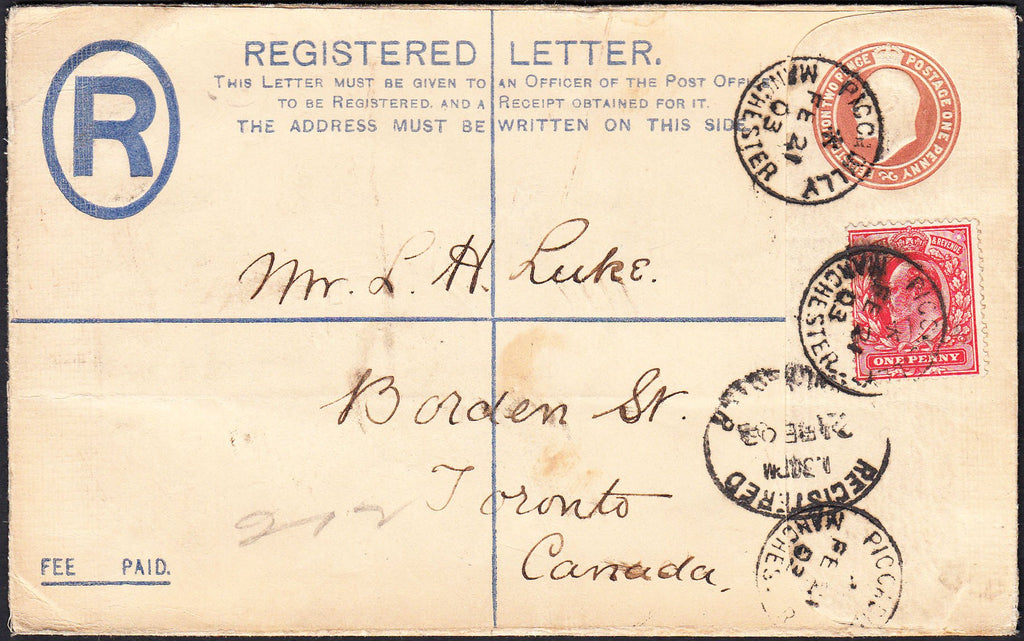 R
REGISTERED LETTER.
THIS LETTER MUST BE GIVEN TO AN OFFICER OF THE POST OFF
TO BE REGISTERED, AND A RECEIPT OBTAINED FOR IT.
THE ADDRESS MUST BE WRITTEN ON THIS SIDE
TWO PENCE POSTAGE ONE PENNY
PICCADILLY
MANCHESTER
FE 21
03
Mr. L. H. Luke.
& REVENUE
ONE PENNY
PICC
MANCHESTER
FE 21
03
Borden St.
REGISTERED
21 FE 03
1.30PM
Toronto
212
Canada,
PICC
MANCHES
FE 21
03
FEE PAID.